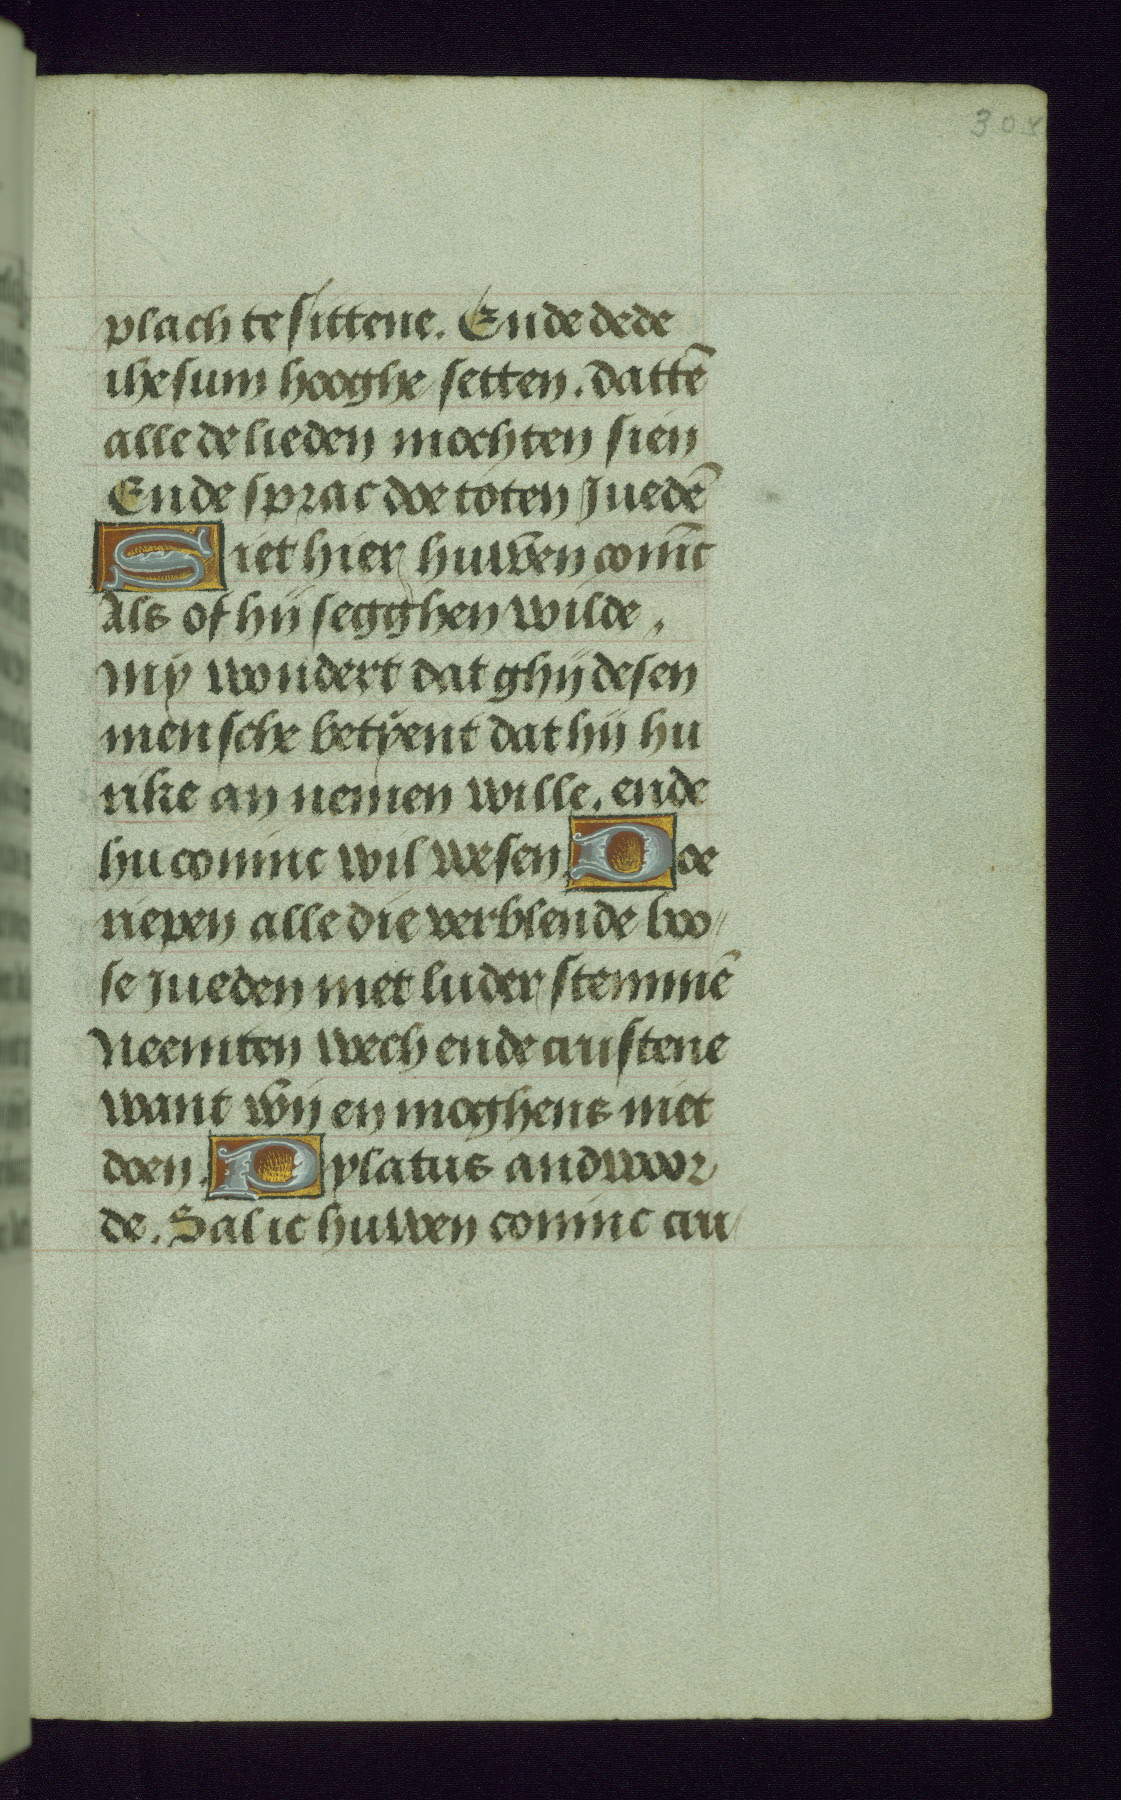 plach te sittene. Ende dede
ihesum hooghe setten. dattē
alle de lieden mochten sien
Ende sprac doe toten Juedē
Siet hier huwen coninc
Als of hij segghen wilde.
My wondert dat ghij desen
mensche betÿent dat hij hu
rike an nemen wille. ende
hu coninc wil wesen. Doe
riepen alle die verblende boo//
se Jueden met luder stemmē
Neemten wech ende crustene
want wij en moghens niet
doen. Pylatus andwoor
de. Sal ic huwen coninc cru/